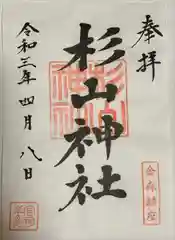 奉拝
杉山神社
令和三年四月八日